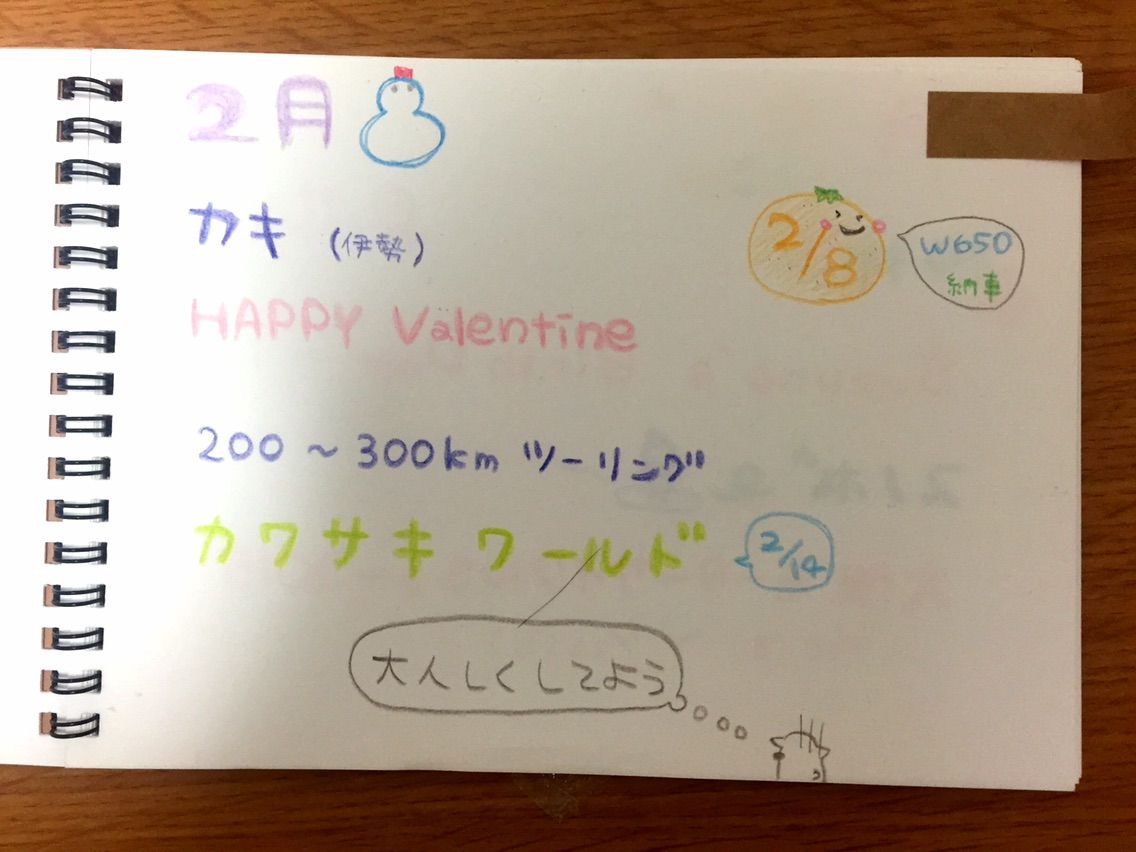 2月
カキ (伊勢)
2/8
W650
納車
HAPPY Valentine
200～300km ツーリング
カワサキ ワールド
2/14
大人しくしてよう